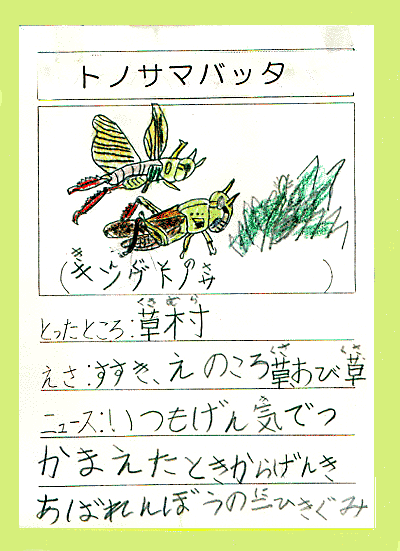 トノサマバッタ
(キングトノサ)
くさむら
とったところ:草村
くさ くさ
えさ:すすき、えのころ草おび草
き
ニュース:!いつもげん気でつ
かまえたときからげんき
に
あばれんぼうの二ひきぐみ